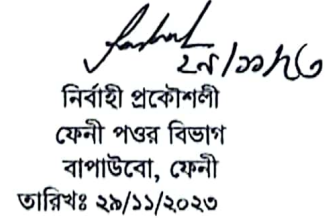 ২৯/১১/২৩
নির্বাহী প্রকৌশলী
ফেনী পওর বিভাগ
বাপাউবো, ফেনী
তারিখঃ ২৯/১১/২০২৩